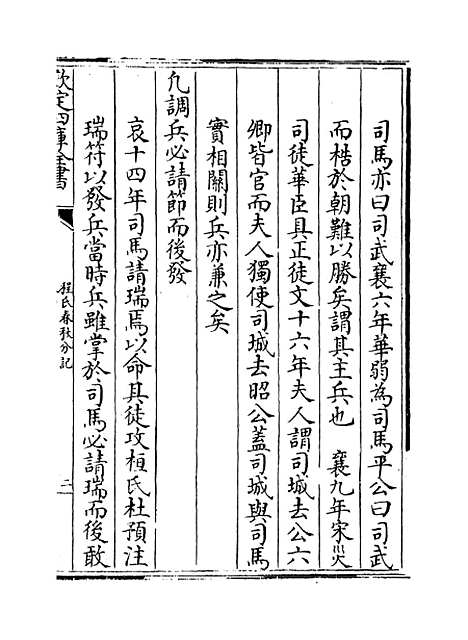 司馬亦曰司武襄六年華弱為司馬平公曰司武
而梏於朝難以勝矣謂其主兵也　襄九年宋災
司徒華臣具正徒文十六年夫人謂司城去公六
卿皆官而夫人獨使司城去昭公蓋司城與司馬
實相關則兵亦兼之矣
凡調兵必請節而後發
哀十四年司馬請瑞焉以命其徒攻桓氏杜預注
瑞符以發兵當時兵雖掌於司馬必請瑞而後敢
欽定四庫全書
程氏春秋分記
二